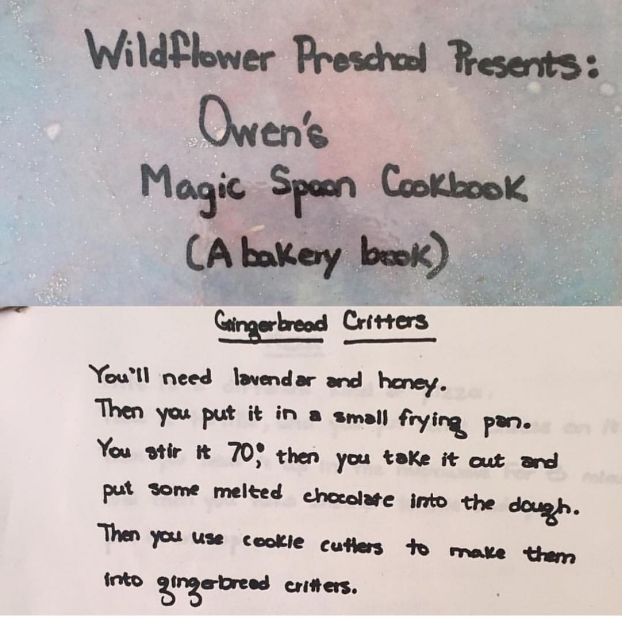 Wildflower Preschool Presents:
Owen's
Magic Spoon Cookbook
(A bakery book)
Gingerbread Critters
You'll need lavendar and honey.
Then you put it in a small frying pan.
You stir it 70°, then you take it out and
put some melted chocolate into the dough.
Then you use cookie cutters to make them
into gingerbread critters.